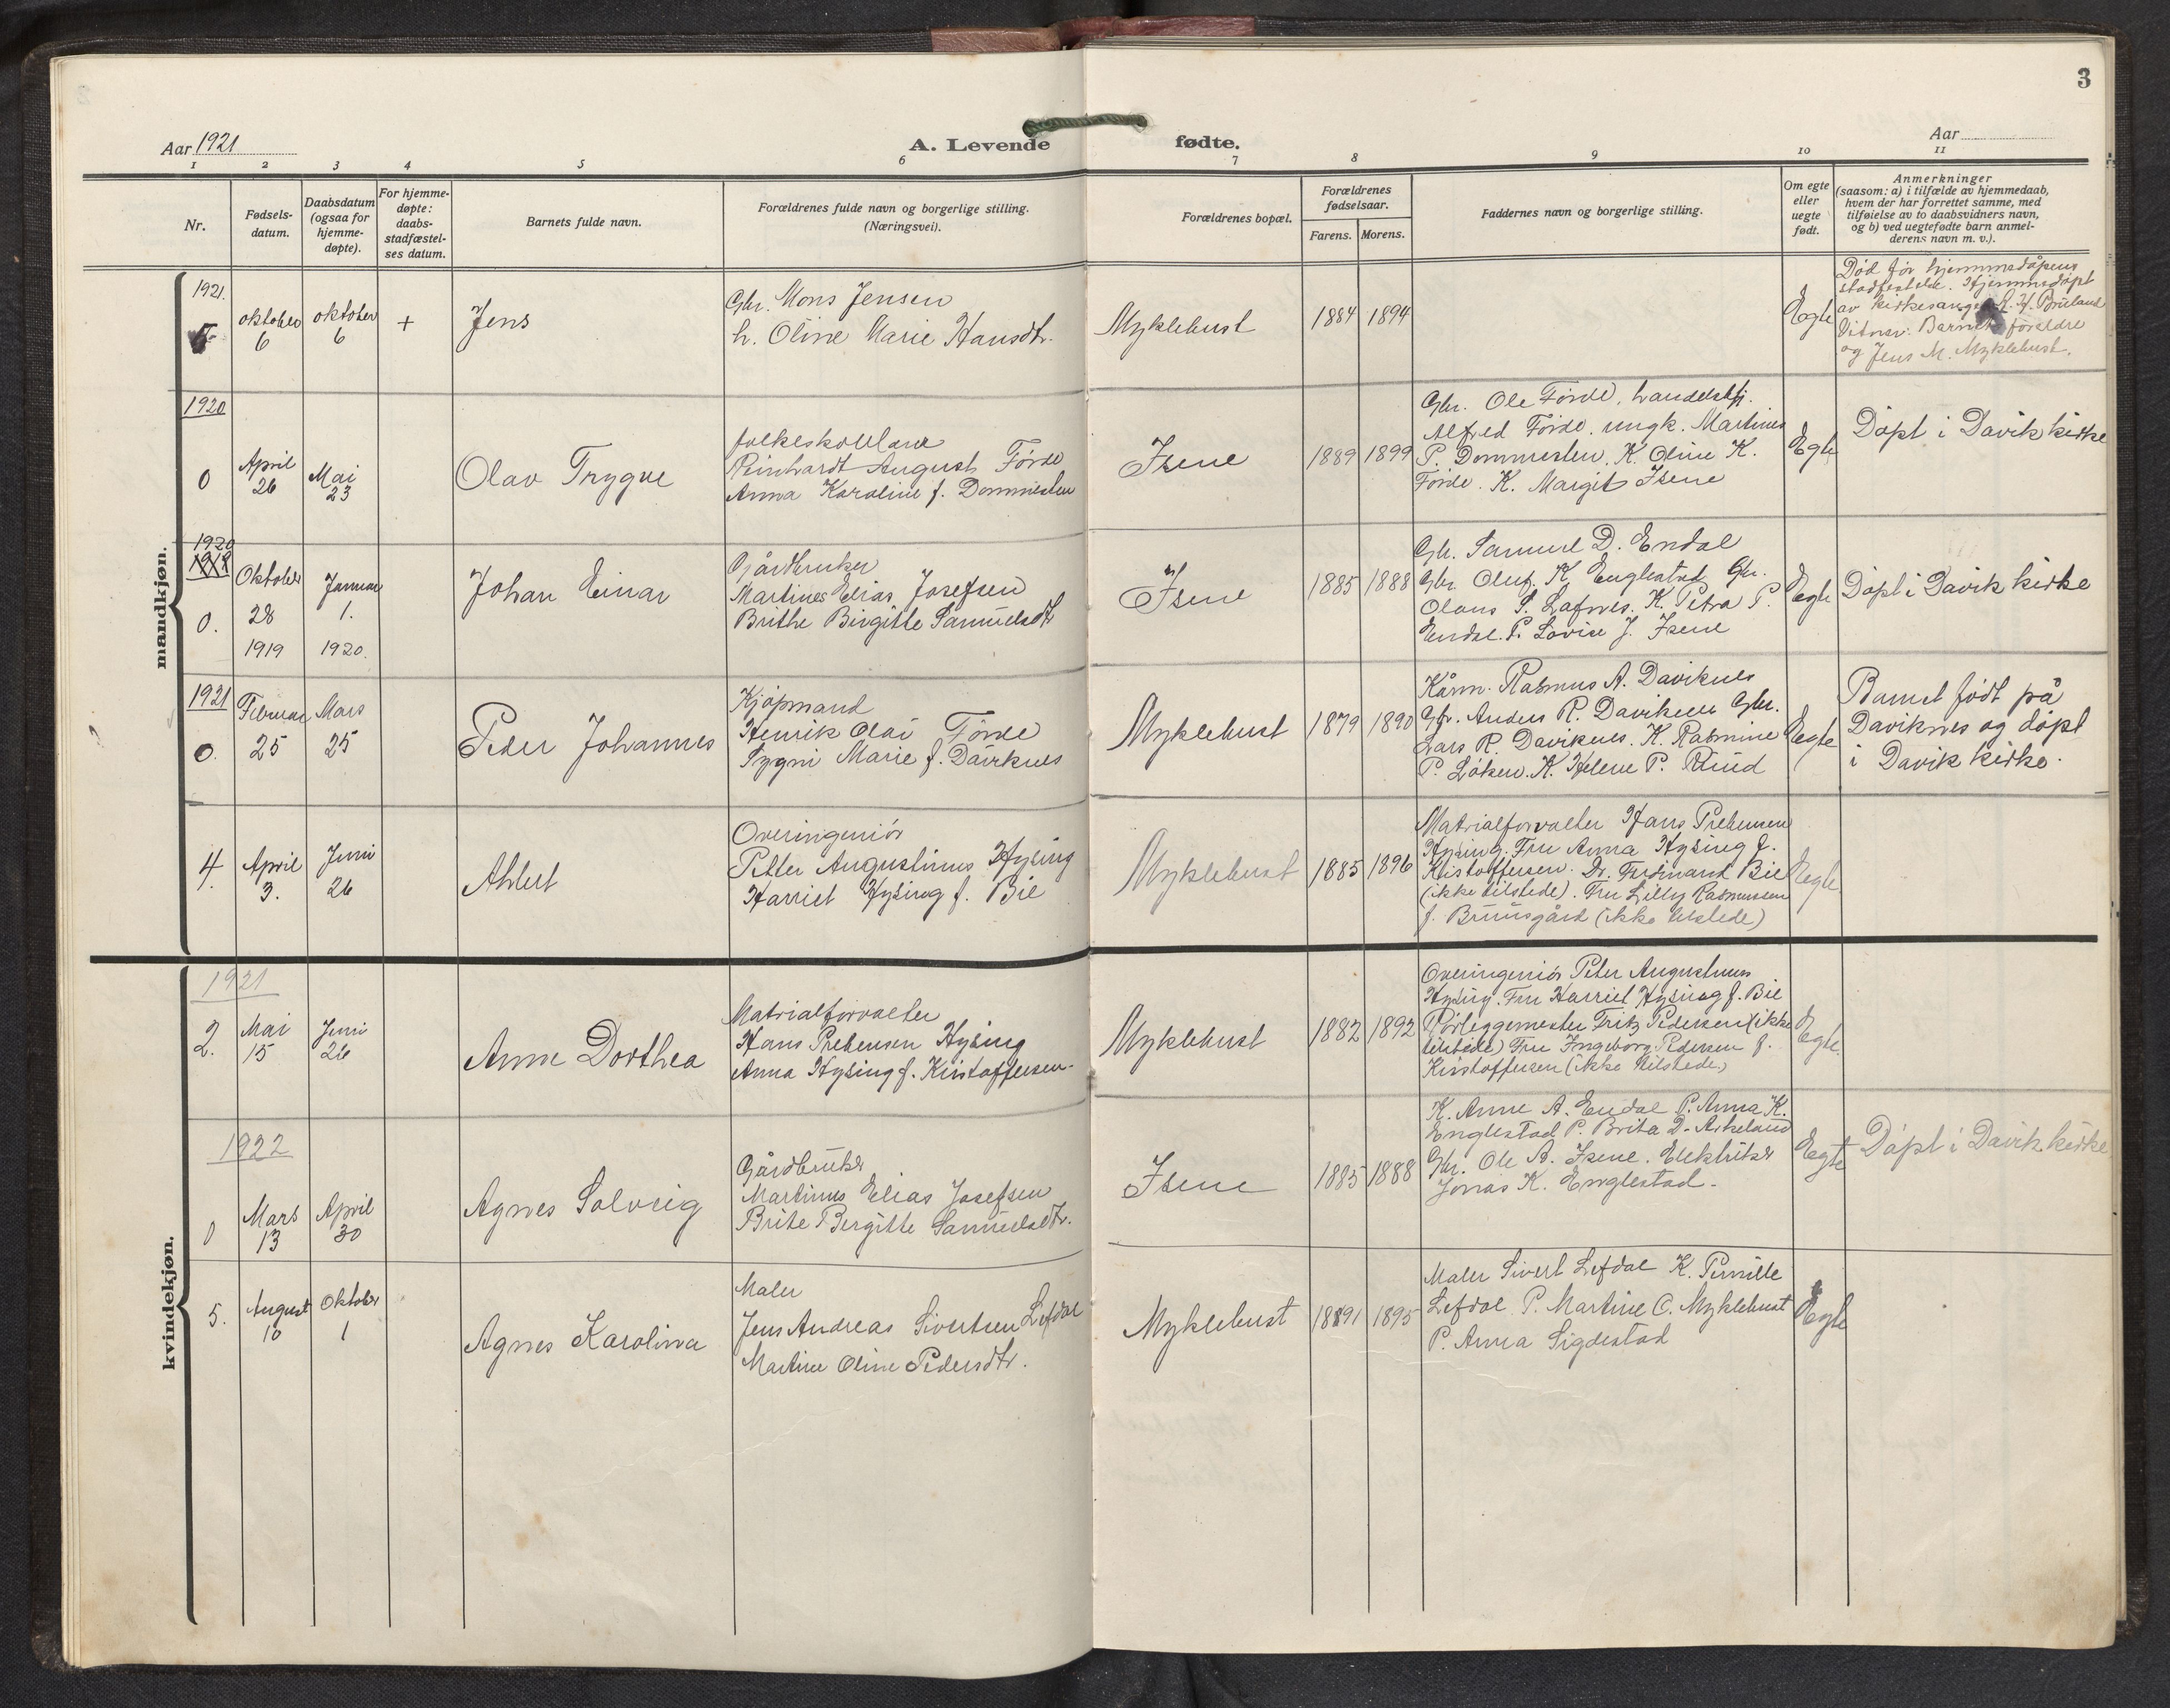 3
Aar 1921
A. Levende
fødte.
Aar
1 2 3 4 5 6 7 8 9 10 11
Nr.
Fødsels-
datum.
Daabsdatum
(ogsaa for
hjemme-
døpte).
For hjemme-
døpte:
daabs-
stadfæstel-
ses datum.
Barnets fulde navn.
Forældrenes fulde navn og borgerlige stilling.
(Næringsvei).
Forældrenes bopæl.
Forældrenes
fødselsaar.
Farens. Morens.
Faddernes navn og borgerlige stilling.
Om egte
eller
uegte
født.
Anmerkninger
(saasom: a) i tilfælde av hjemmedaab,
hvem der har forrettet samme, med
tilføielse av to daabsvidners navn,
og b) ved uegtefødte barn anmel-
derens navn m. v.).
mandkjøn.
1921.
oktober
6
oktober
6
+
Jens
Gbr. Mons Jensen
h. Oline Marie Hansdtr.
Myklebust
1884 1894
Egte
Död før hjemmedåpens
stadfestelse. Hjemmedöpt
av kirkesanger
Barnets foreldre
og Jens M. Myklebust.
1920
0
April
26
Mai
23
Olav Trygve
folkeskollærer
Reinhardt August Förde
Anna Karoline f. Dommesten
Isene
1889 1899
Gbr. Ole Förde, handelsbtj.
Alfred Förde. ungk. Martines
P. Dommesten. K. Oline K.
Förde. K. Margit Isene
Egte
Döpt i Davik kirke
1920
0.
Oktober
28
1919
Januar
1.
1920.
Johan Einar
Gårdbruker
Martines Elias Josefsen
Brithe Birgitte Samuelsdtr
Isene
1885 1888
Gbr. Samuel D. Endal
Gbr. Oluf. K. Englestad Gbr.
Olaus S. Lafnes. K. Petra P.
Endal. P. Lovise J. Isene
Egte
Döpt i Davik kirke
1921
0.
Februar
25
Mars
25
Peder Johannes
Kjöpmand
Henrik Olai Förde
Sygni Marie f. Daviknes
Myklebust
1879 1890
Kårm. Rasmus A. Daviknes
Gbr. Anders R. Daviknes Gbr.
Lars R. Daviknes. K. Rasmine
P. Löken. K. Helene P. Rud
Egte
Barnet födt på
Daviknes og döpt
i Davik kirke.
4.
April
3.
Juni
26
Ahlert
Overingeniör
Petter Augustinus Hysing
Harriet Hysing f. Bie
Myklebust
1885 1896
Matrialforvalter Hans Prebensen
Hysing. Fru Anna Hysing f.
Kristoffersen. Dr. Ferdinand Bie
(ikke tilstede). Fru Lilly Rasmussen
f. Bruusgård (ikke tilstede)
Egte
kvindekjøn.
1921
2.
Mai
15
Juni
26
Anne Dorthea
Matrialforvalter
Hans Prebensen Hysing
Anna Hysing f. Kristoffersen.
Myklebust
1882 1892
Overingeniör Peter Augustinus
Hysing. Fru Harriet Hysing f. Bie
Rörleggemester Fritz Pedersen (ikke
tilstede) Fru Ingeborg Pedersen f.
Kristoffersen (ikke tilstede)
Egte.
1922
0
Mars
13
April
30
Agnes Solveig
Gårdbruker
Martinus Elias Josefsen
Brite Bergitte Samuelsdtr.
Isene
1885 1888
K. Anne A. Endal P. Anna K.
Englestad P. Brita D. Askeland
Gbr. Ole A. Isene. Elektriker
Jonas K. Englestad.
Egte
Döpt i Davik kirke
5.
August
10
Oktober
1
Agnes Karolina
Maler
Jens Andreas Sivertsen Lefdal
Martine Oline Pedersdtr.
Myklebust
1891 1895
Maler Sivert Lefdal K. Pernille
Lefdal P. Martine C. Myklebust
P. Anna Sigdestad
Egte